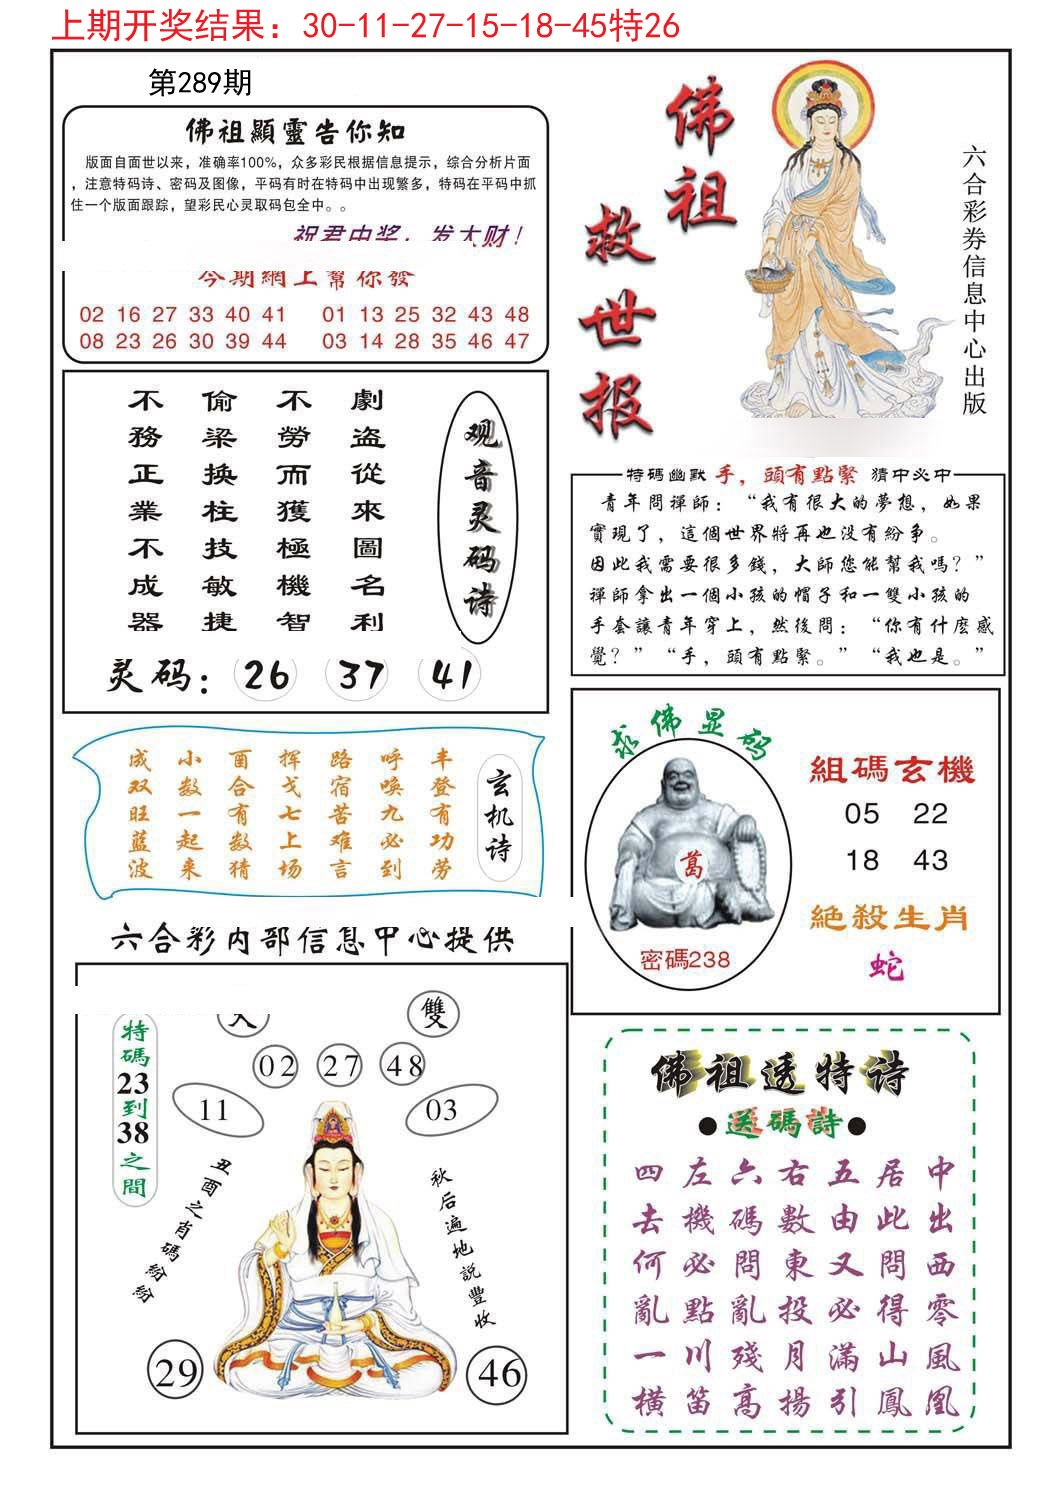 上期开奖结果：30-11-27-15-18-45特26
第289期
佛祖顯靈告你知
版面自面世以来，准确率100%，众多彩民根据信息提示，综合分析片面
，注意特码诗、密码及图像，平码有时在特码中出现繁多，特码在平码中抓
住一个版面跟踪，望彩民心灵取码包全中。。
祝君中奖，发大财！
今期網上幫你發
02 16 27 33 40 41 01 13 25 32 43 48
08 23 26 30 39 44 03 14 28 35 46 47
佛祖
救世报
六合彩券信息中心出版
不務正業不成器
偷梁換柱技敏捷
不勞而獲極機智
劇盗從來圖名利
观音灵码诗
灵码：26 37 41
特碼幽默 手，頭有點緊 猜中必中
青年問禪師：“我有很大的夢想，如果
實現了，這個世界將再也没有紛争。
因此我需要很多錢，大師您能幫我嗎？”
禪師拿出一個小孩的帽子和一雙小孩的
手套讓青年穿上，然後問：“你有什麼感
覺？”“手，頭有點緊。”“我也是。”
成双旺蓝波
小数一起来
酉合有数猜
挥戈七上场
路宿苦难言
呼唤九必到
丰登有功劳
玄机诗
求佛显码
萬
密碼238
組碼玄機
05 22
18 43
絕殺生肖
蛇
六合彩内部信息中心提供
雙
02 27 48
11 03
特碼23到38之間
丑酉之肖碼紛紛
秋后遍地説豐收
29 46
佛祖透特诗
●送碼詩●
四去何亂一横
左機必點川笛
六碼問亂殘高
右數東投月揚
五由又必滿引
居此問得山鳳
中出西零風凰